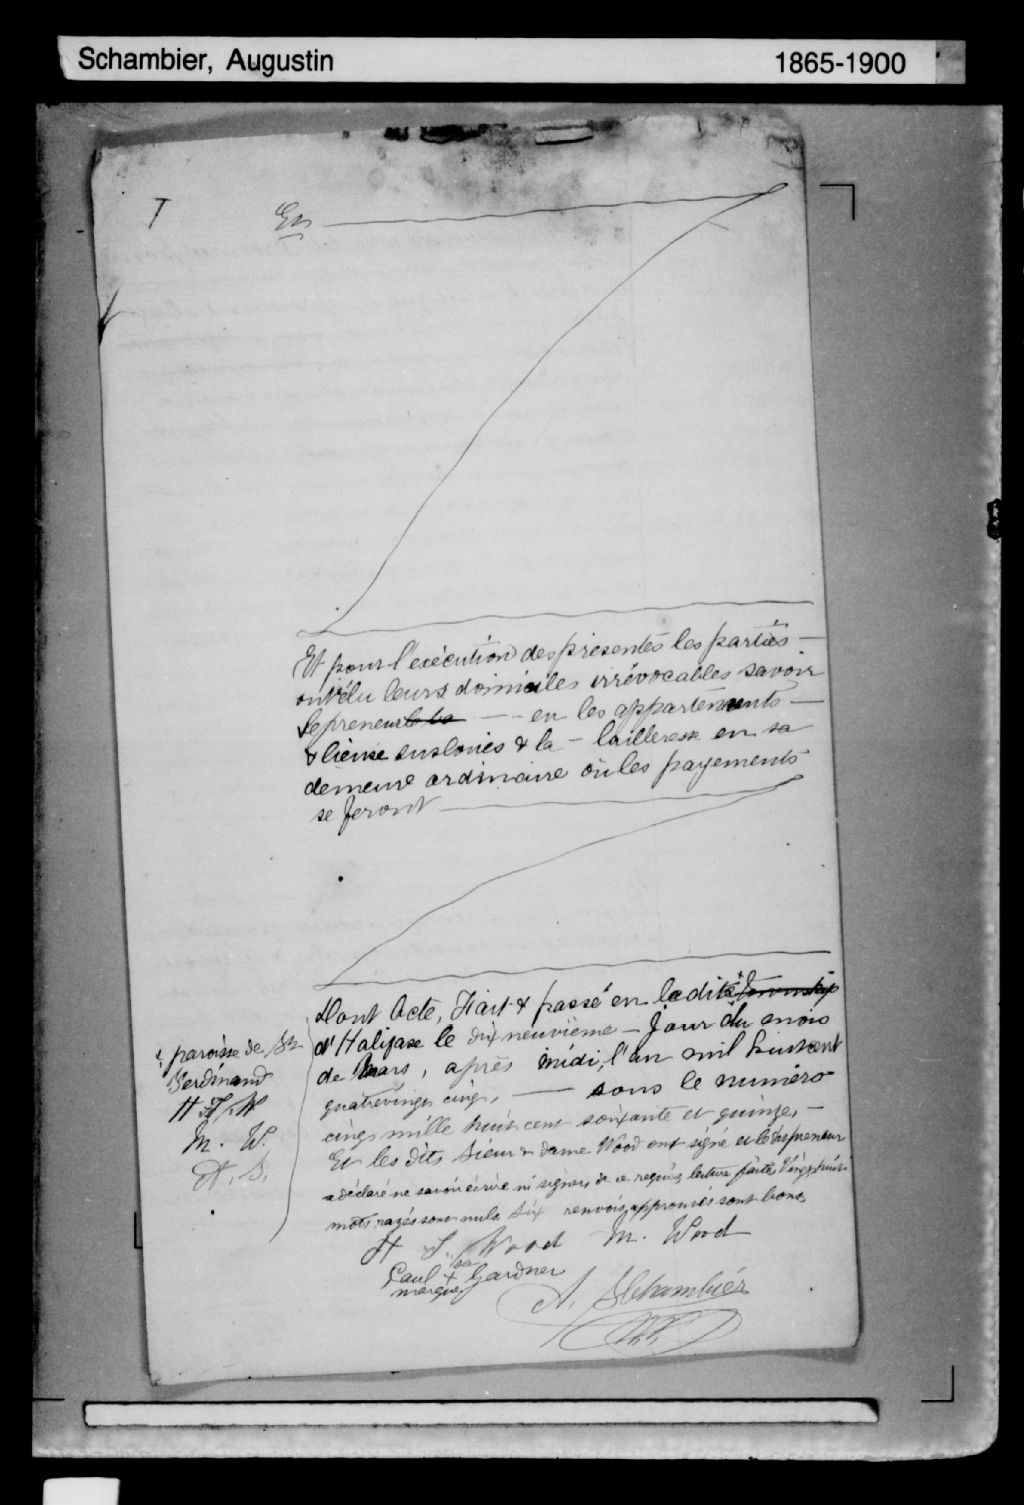 Schambier, Augustin 1865-1900
En
Et pour l'exécution des présentes les parties
ont élu leurs domiciles irrévocables savoir
le preneur en les appartements
& lieux susloués & la bailleresse en sa
demeure ordinaire où les payements
se feront
Dont Acte, Fait & passé en ladite township
d'Halifaxe le dix neuvième jour du mois
de Mars, après midi, l'an mil huit cent
quatrevingt cinq, sous le numéro
cinq mille huit cent soixante et quinze,
Et les dits Sieur & dame Wood ont signé et le dit preneur
a déclaré ne savoir écrire ni signer, de ce requis, lecture faite, Vingt huit
mots rayés sont nuls Six renvois approuvés sont bons
paroisse de St
Ferdinand
H S. W
M. W.
A. S.
H S. Wood M. Wood
sa
Paul + Gardner
marque
A. Schambier